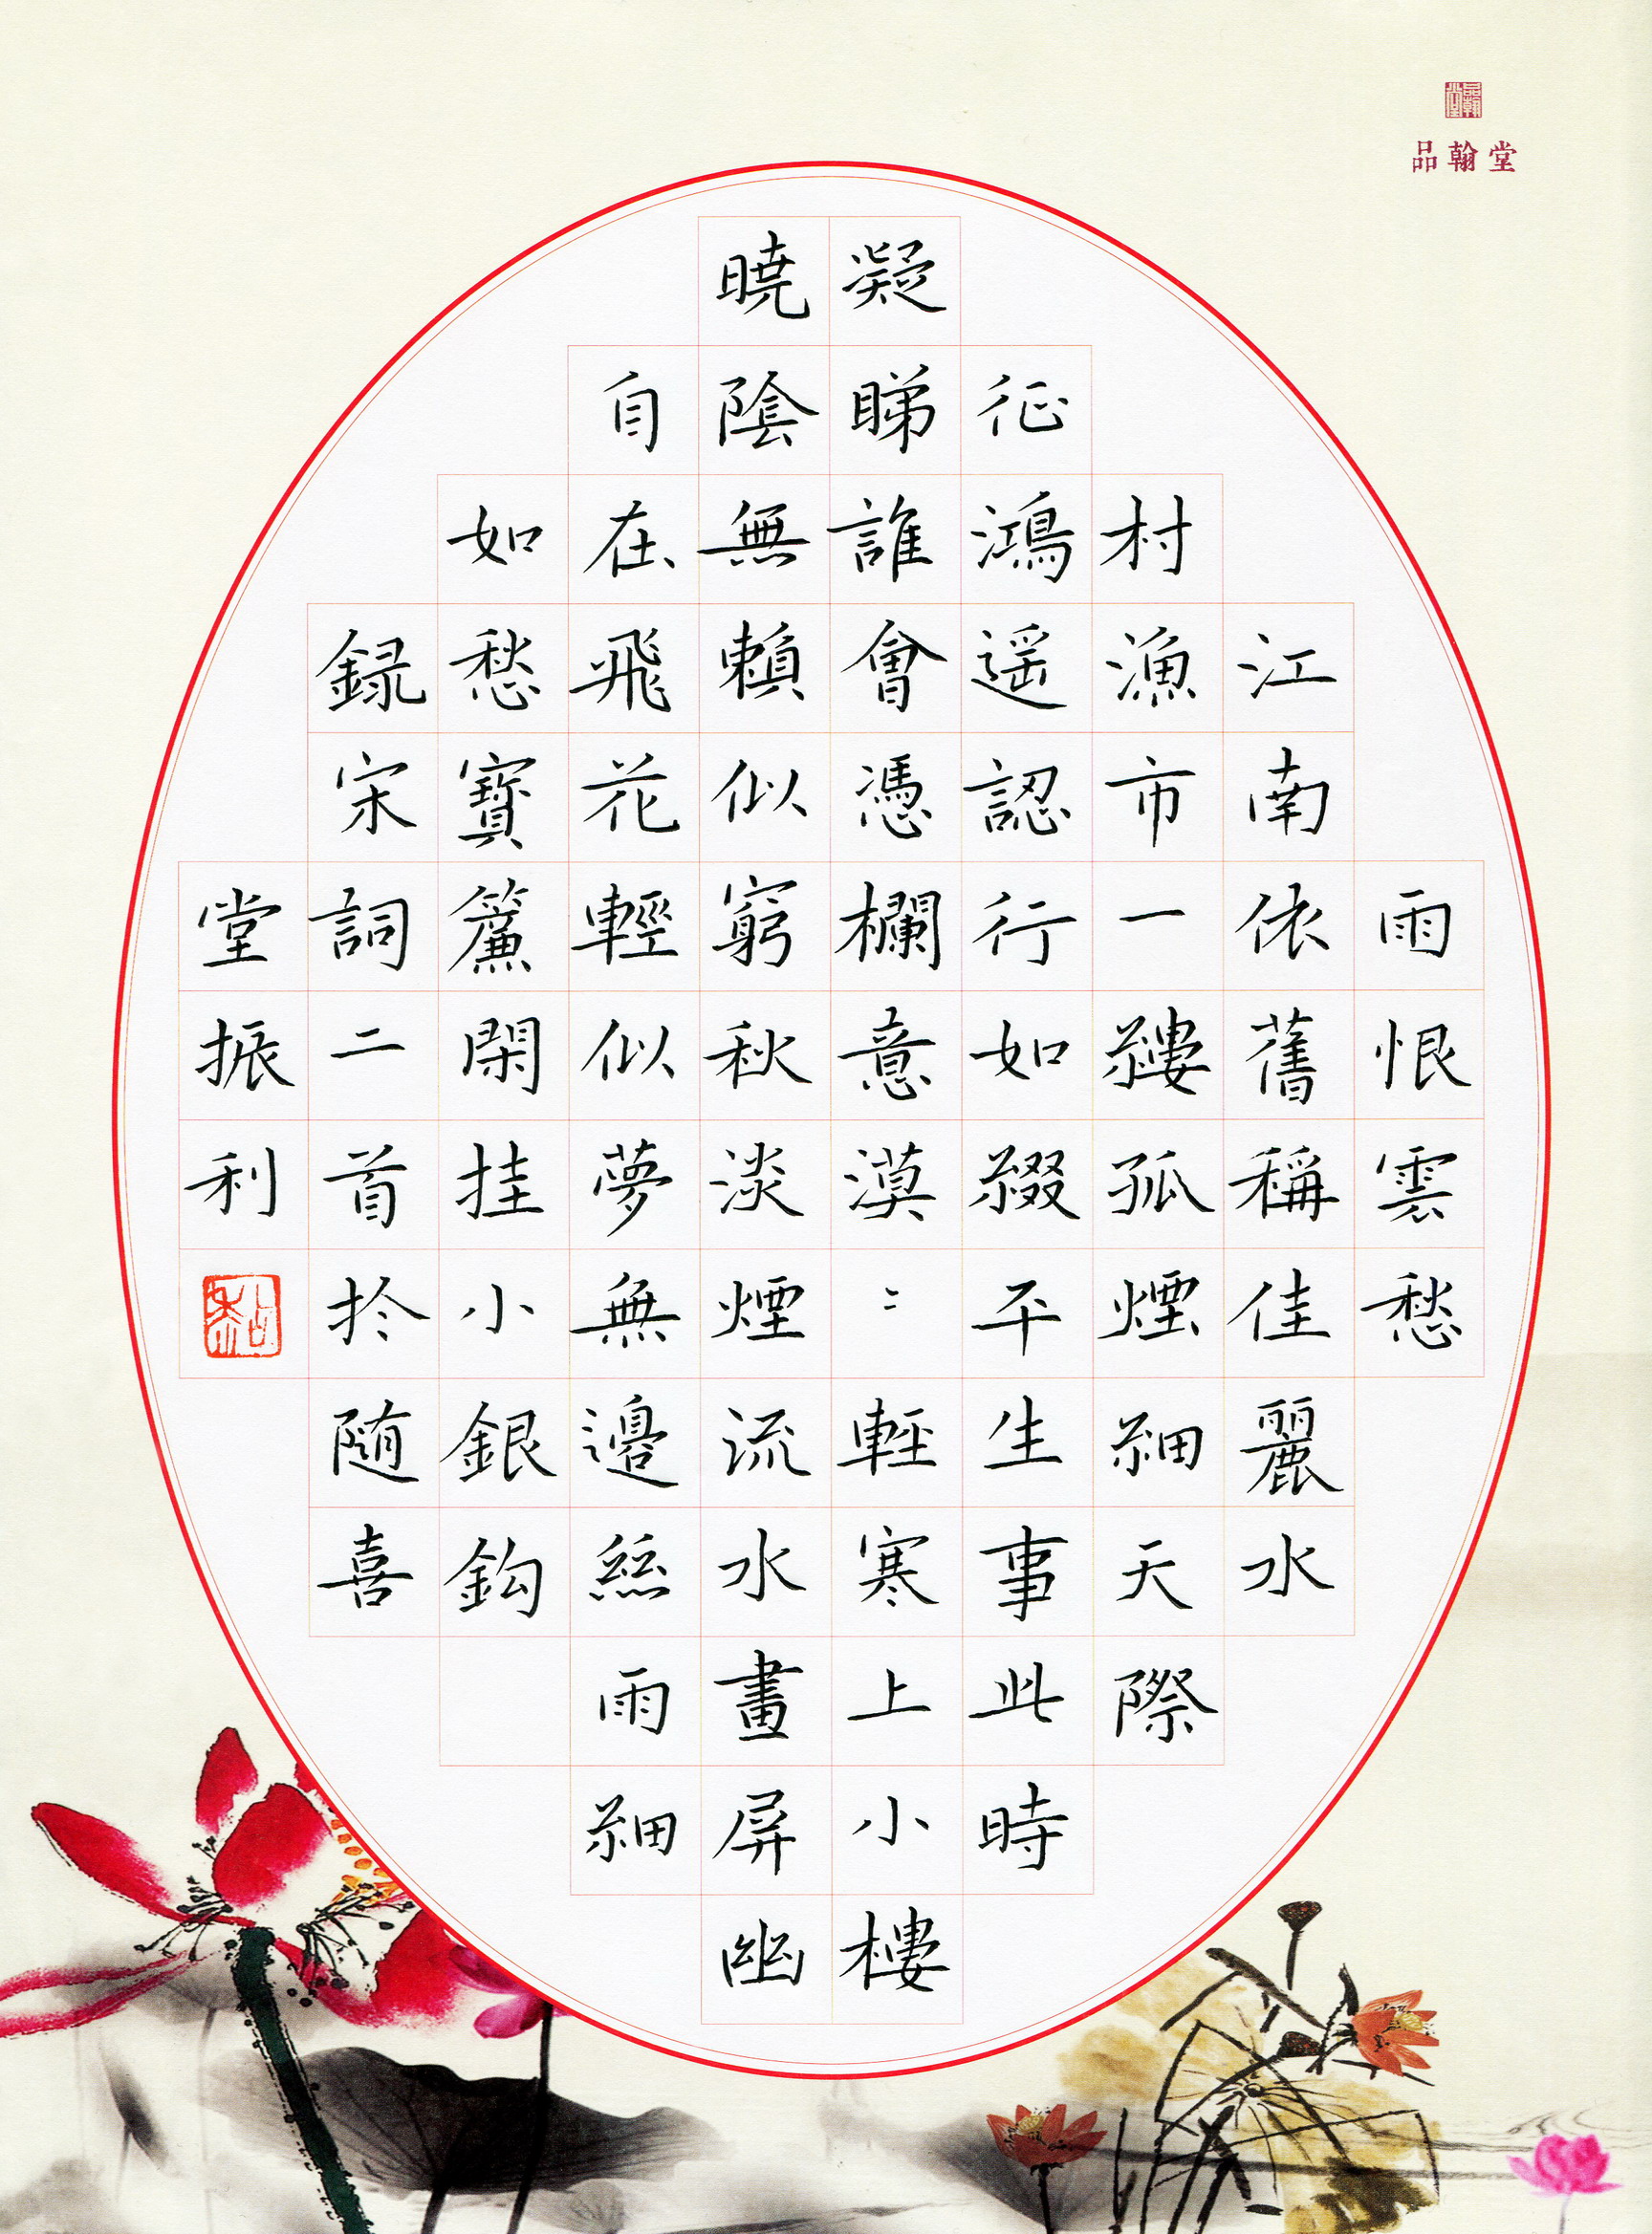 品翰堂
雨恨雲愁
江南依舊稱佳麗水
村漁市一縷孤煙細天際
征鴻遥認行如綴平生事此時
凝睇誰會憑欄意漠〻輕寒上小樓
曉陰無賴似窮秋淡煙流水畫屏幽
自在飛花輕似夢無邊絲雨細
如愁寶簾閑挂小銀鈎
録宋詞二首扵随喜
堂振利